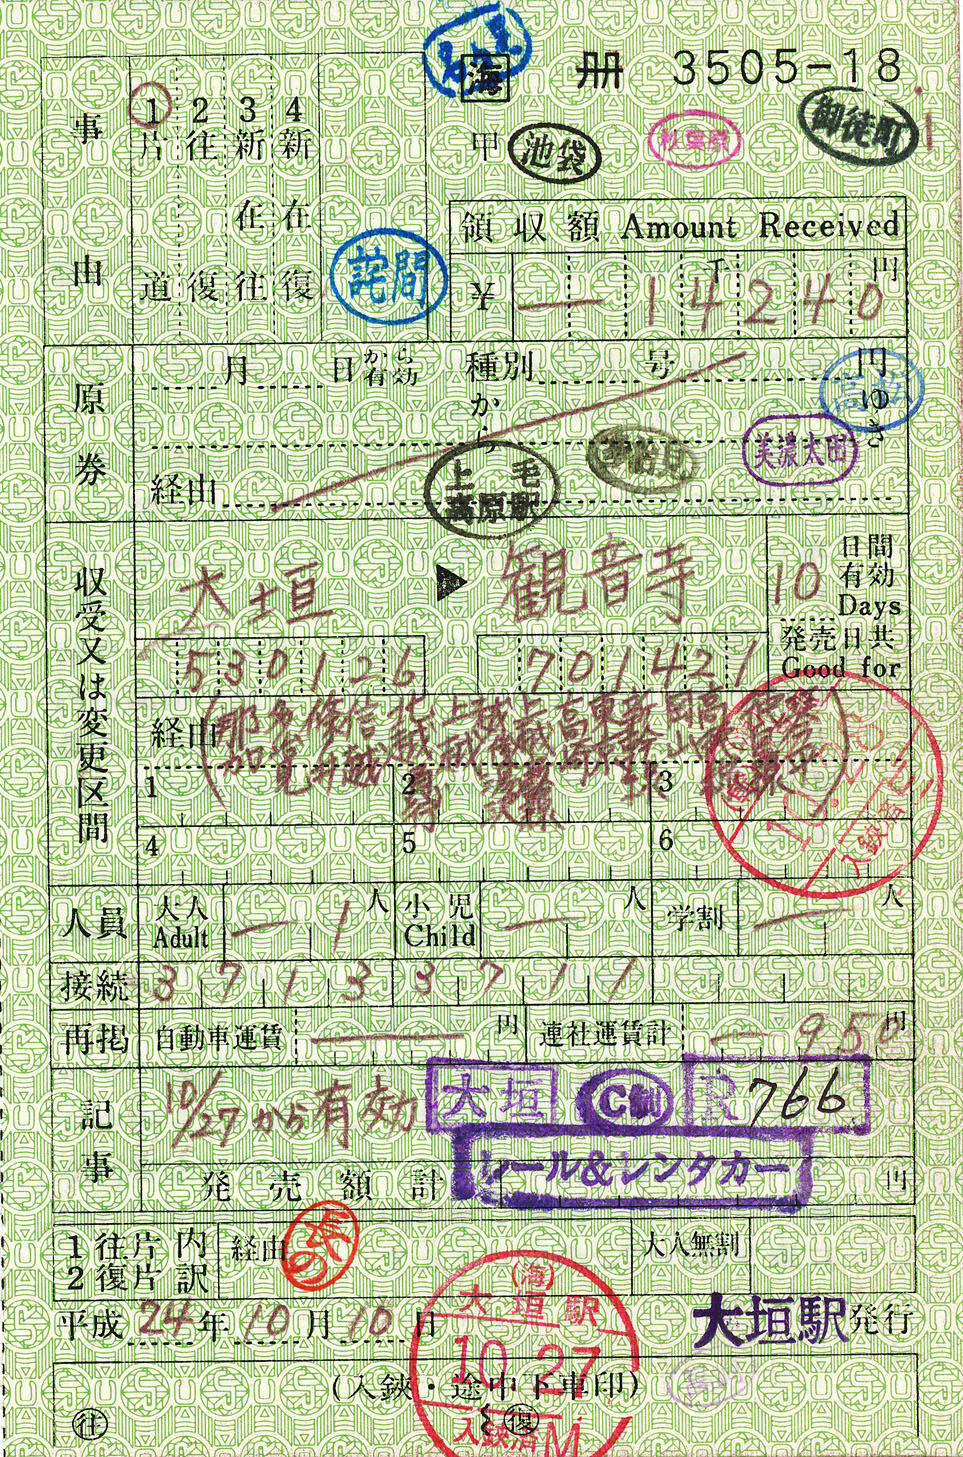 海 冊 3505-18
事由
1 2 3 4
片道 往復 新在往 新在復
甲 池袋 秋葉原 御徒町
詫間
領収額 Amount Received
¥ 千 円
— 14240
原券
月 日から有効 種別 号 円
から ゆき
高松
経由
上毛高原駅
美濃太田
収受又は変更区間
大垣 ▶ 観音寺
10 日間有効 Days
発売日共 Good for
530126 701421
経由
1 2 3
4 5 6
入鋏済
人員 大人 Adult — 1 人 小児 Child — 人 学割 — 人
接続 3713 3711
再掲 自動車運賃 — 円 連社運賃計 — 950 円
記事
10/27から有効
大垣 C制 R 766
レール&レンタカー
発売額計 円
1往片 内 経由 大人無割
2復片 訳
平成 24年 10月 10日 大垣駅 発行
(海)
大垣駅
10.-27
入鋏済 M
(入鋏・途中下車印)
往 復